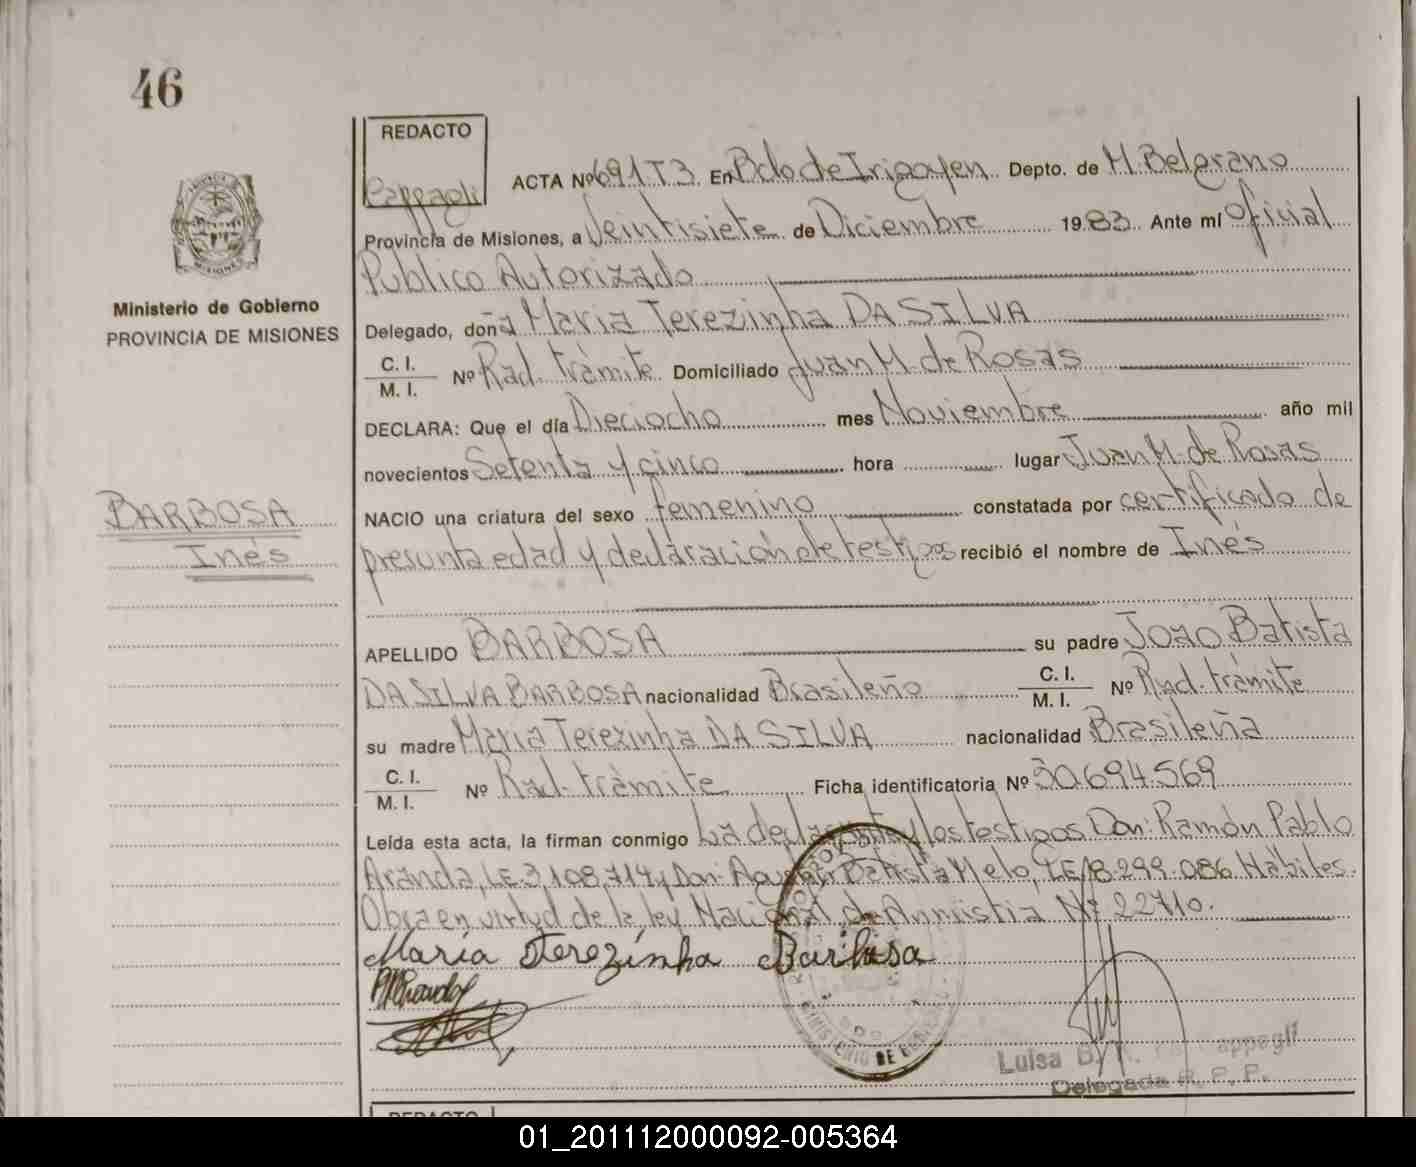 46
REDACTO
Cappagli
ACTA Nº 691 T3. En Bdo de Irigoyen. Depto. de M. Belgrano
Provincia de Misiones, a Veintisiete de Diciembre 1983. Ante mí Oficial
Público Autorizado
Ministerio de Gobierno
PROVINCIA DE MISIONES
Delegado, doña Maria Terezinha DA SILVA
C. I.
M. I. Nº Rad. trámite. Domiciliado Juan M. de Rosas
DECLARA: Que el día Dieciocho mes Noviembre año mil
novecientos Setenta y cinco hora lugar Juan M. de Rosas
NACIO una criatura del sexo femenino constatada por certificado de
presunta edad y declaración de testigos recibió el nombre de Inés
BARBOSA
Inés
APELLIDO BARBOSA su padre Joao Batista
DA SILVA BARBOSA nacionalidad Brasileño C. I.
M. I. Nº Rad. trámite
su madre Maria Terezinha DA SILVA nacionalidad Brasileña
C. I.
M. I. Nº Rad. trámite Ficha identificatoria Nº 30.694.569
Leída esta acta, la firman conmigo La declarante y los testigos Don: Ramón Pablo
Aranda, LE 3.108.714 y Don: Batista Melo, LE 8.299.086 Hábiles.
Obra en virtud de la ley Nacional de Amnistia Nº 22710.
María Terezinha Barbosa
MINISTERIO DE
Luisa B. Cappagli
Delegada R. P. P.
REDACTO
01_201112000092-005364